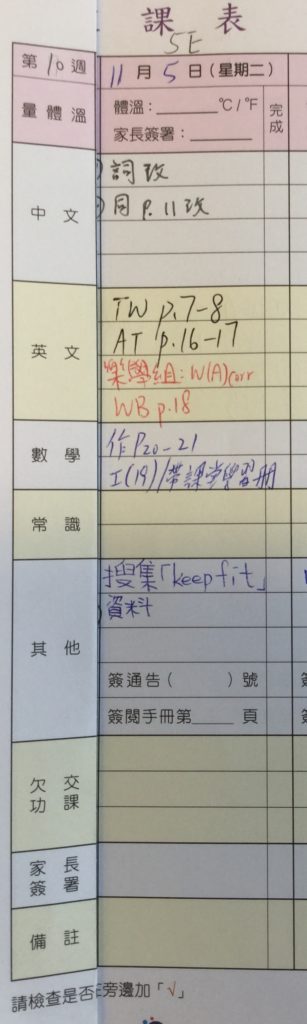 課 表
5E
第 10 週
11 月 5 日 (星期二)
量 體 溫
體溫：______ °C/°F
家長簽署：______
完成
中 文
詞改
同 P.11 改
英 文
TW p.7-8
AT p.16-17
樂學組：W(A)corr
WB p.18
數 學
作P20-21
工(19)/帶課堂學習冊
常 識
其 他
搜集「keep fit」
資料
簽通告( )號
簽閱手冊第____頁
欠 交
功 課
家 長
簽 署
備 註
請檢查是否
旁邊加「√」